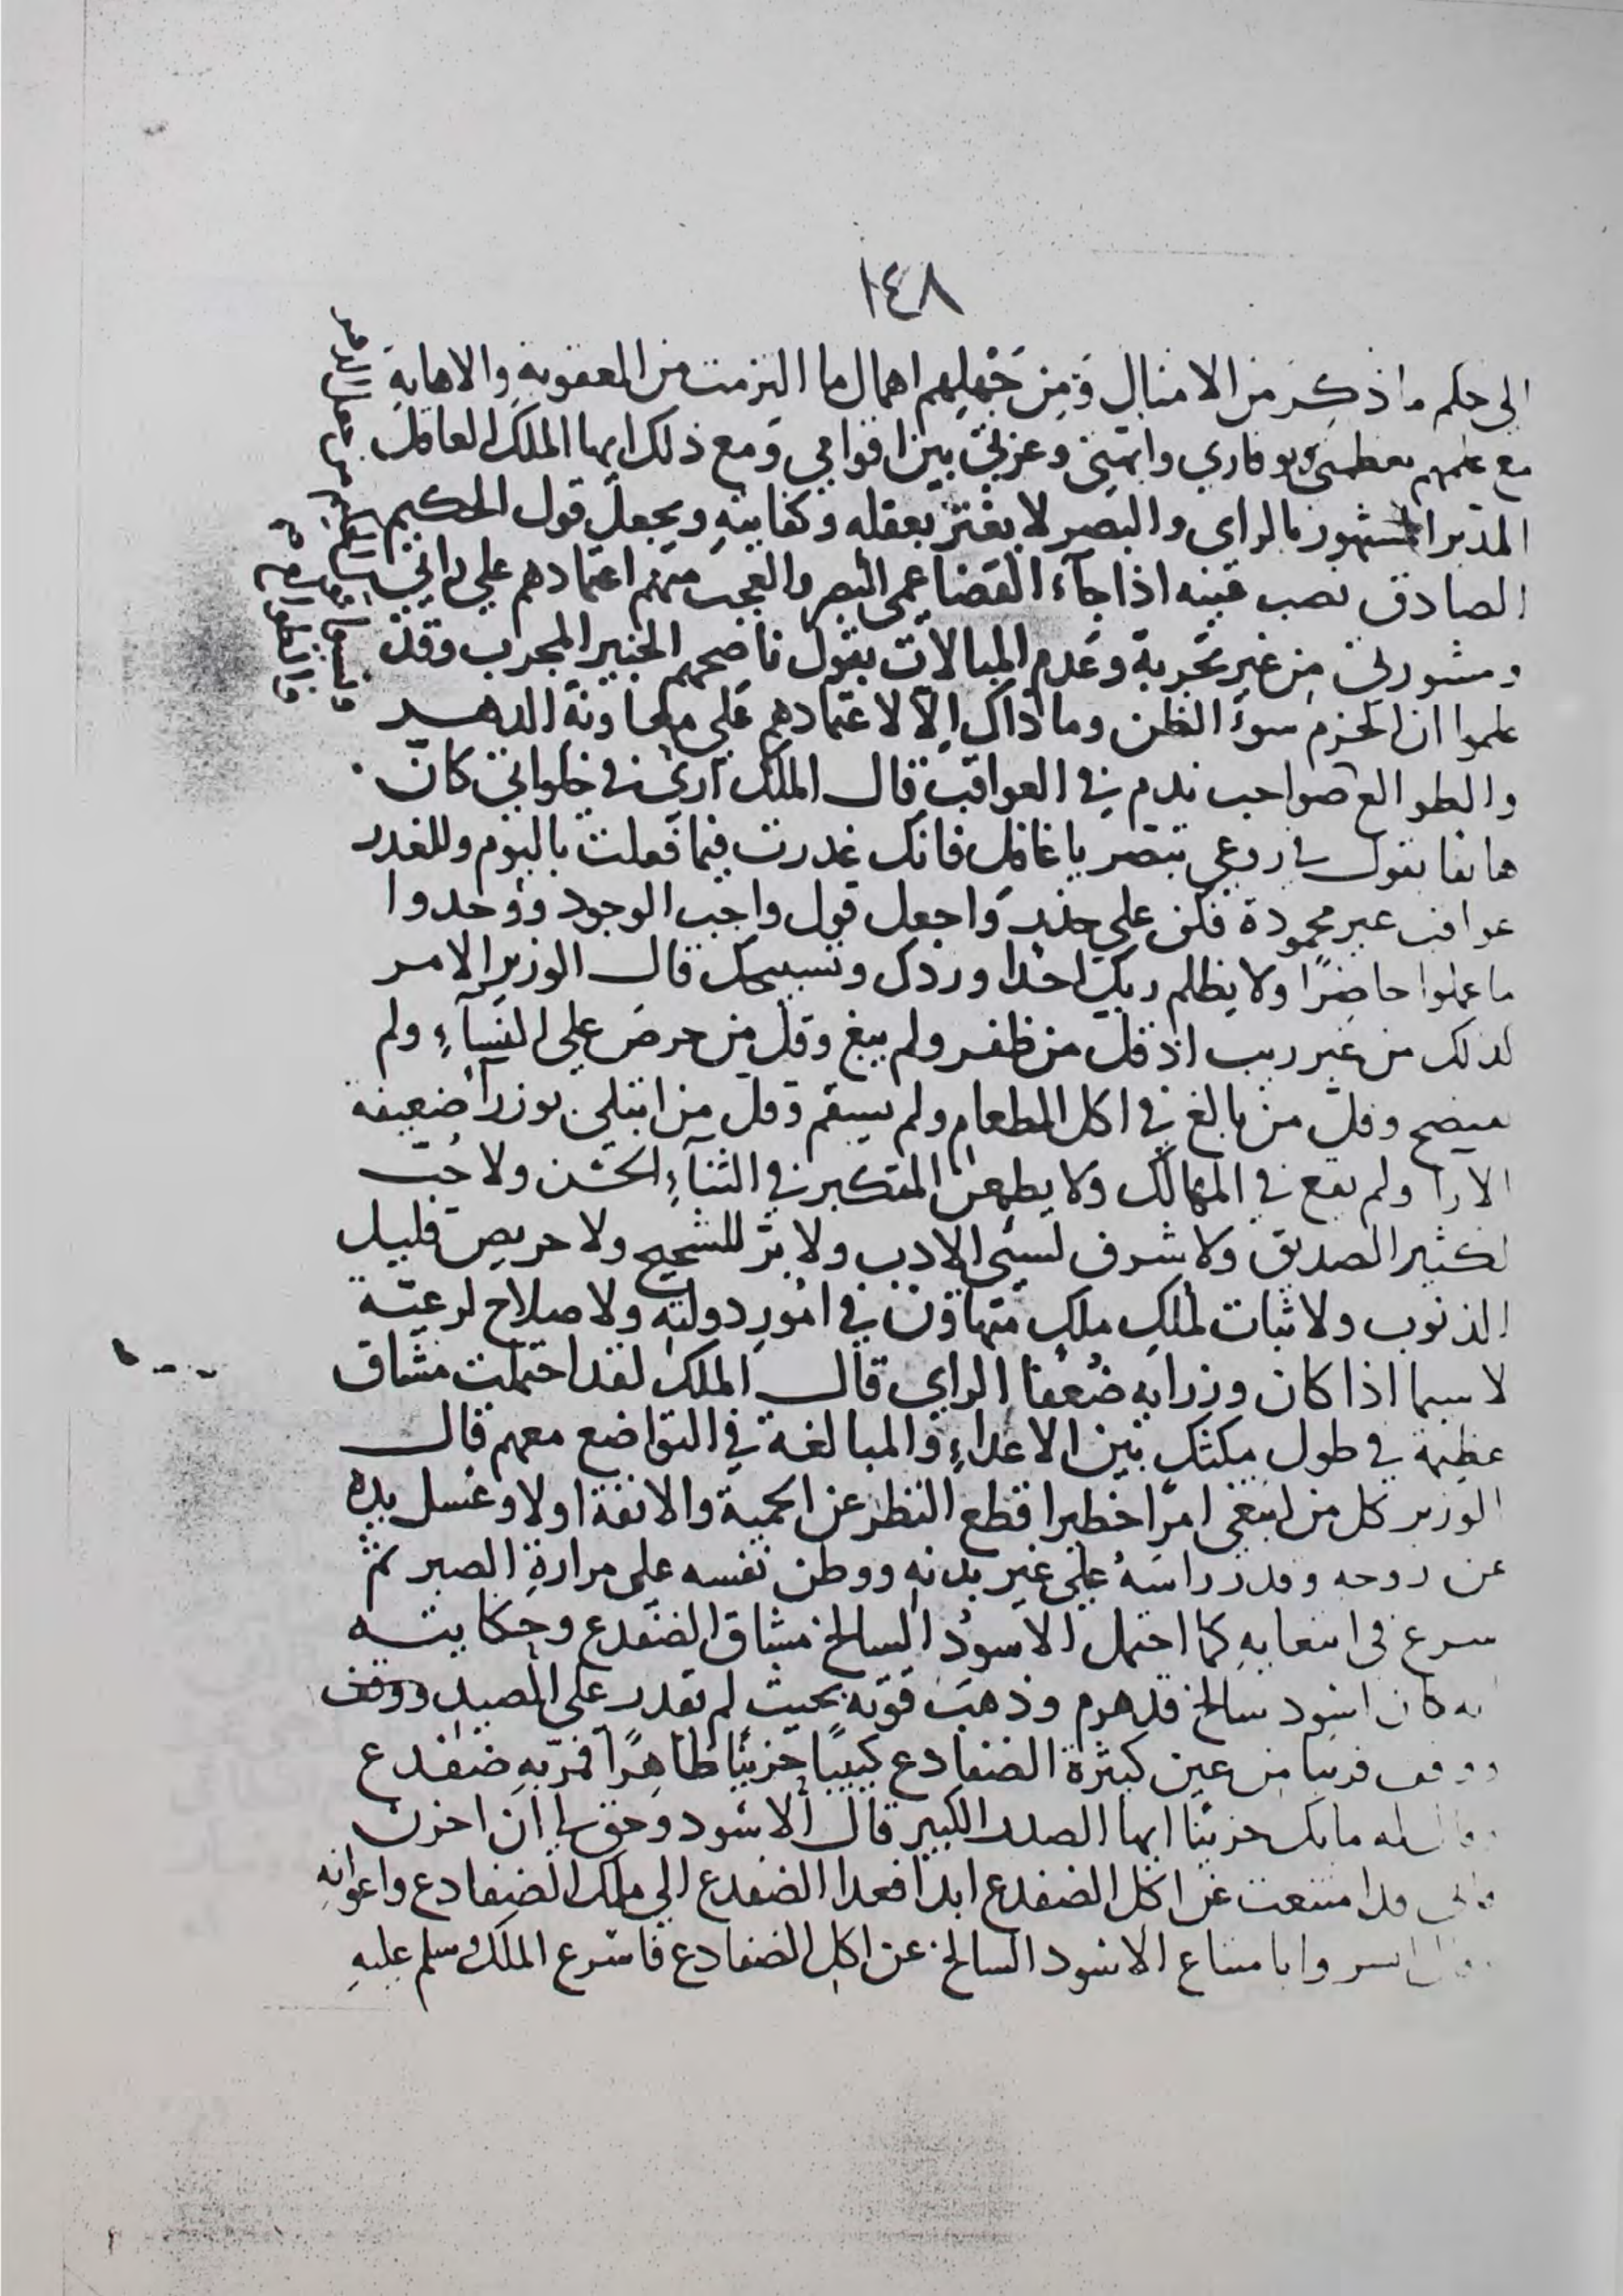 ١٤٨
الى حكم ما ذكر من الامثال وَمِن جَهْلِهم اهمال ما التزمت من العقوبة والاهانة
مع علمهم بعظمتي ووقاري وابهتي وعزتي بين اقوامي وَمع ذلك ايها الملك العاقل
المدبر المشهور بالراي والبصر لا يغتر بعقله وكفايتهِ ويجعل قول الحكيم
الصادق نصب عينه اذا جآء القضا عمى البصر والعجب منهم اعتمادهم علي رائي
ومشورتي مِن غير تجربة وَعَدم المبالات بقول ناصحهم الخبير المجرب وقد
علموا ان الحزم سوءُ الظن وما ذاك اِلّا لاعتمادهم عَلي معاونة الدهر
والطوالع صواحب ندم في العواقب قال الملك اري في خلواتي كان
هاتفا يقول في روعي تبصر يا غافل فانك غدرت فيما فعلت بالبوم وللغدر
عواقب غير محمودة فكن علي حذر وَاجعل قول واجب الوجود ووَجدوا
ما عملوا حاضرًا ولا يظلم ربك احدا وردك وتسبيحك قال الوزير الامر
لذلك من غير ريب اذ قل من ظفر ولم يبغ وقل من حرصَ علي النسآءِ ولم
يفتضح وقلّ من بالغ في اكل الطعام ولم يسقم وَقل من ابتلي بوزرآ ضعيفة
الارا ولم يقع في المهالك ولا يطمعن المتكبر في الثنآءِ الحسَن ولا خبّ
لكثير الصديق ولا شرف لسيّئ الادب ولا برّ للشحيح ولا حريص قليل
الذنوب ولا ثبات لملكِ ملكٍ متهاون في امُورِ دولتهِ ولا صلاح لرعيّته
لا سيما اذا كان وزرايه ضُعفا الراي قال الملك لقد احتملت مشاق
عظيمة في طول مكثك بَين الاعداءِ والمبالغة في التواضع معهم قال
الوزير كل من ابتغى امرًا خطيرا قطع النظر عن الحمية والانفة اولا وغسل يده
عن روحه وقدر راسَهُ عَلي غير بدنهِ ووطن نفسه علي مرارةِ الصبر ثم
سرع في ابتغايهِ كما احتمل الاسودُ السالخ مشاق الضفدع وحِكايته
انه كان اسَود سالخ قد هرم وذهبَ قوّته بحيث لم يقدر على المصيد ووقف
ووقف قريبا مِن عين كثيرة الضفادع كئيبًا حزينًا ظاهِرًا فمرّ بهِ ضفدع
وقال له ما بك حزينا ايها الصدر الكبير قال الاسَود وحق لي ان احزن
فاني قد امتنعت عَن اكل الضفدع ابدًا فعدا الضفدع الي ملك الضفادع واعوانهِ
وقال ابشروا بامتناع الاسَود السالخ عن اكل الضفادع فاسَرع الملك وسلم عليهِ